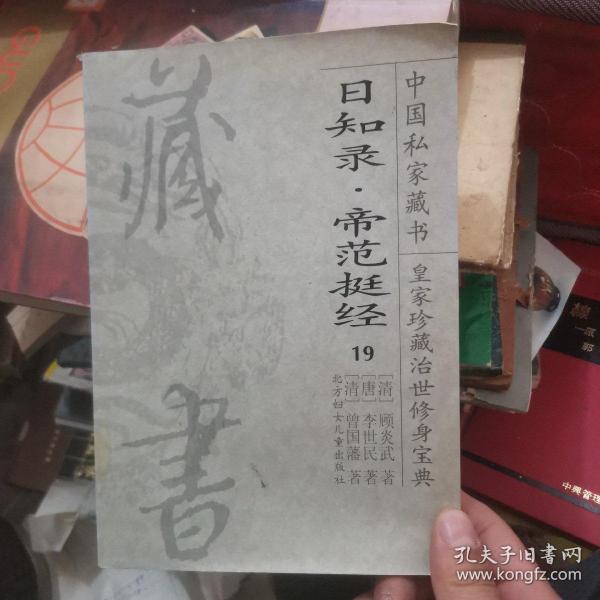 中国私家藏书
皇家珍藏治世修身宝典
日知录·帝范挺经
19
[清] 顾炎武 著
[唐] 李世民 著
[清] 曾国藩 著
北方妇女儿童出版社
藏書
中興管理
孔夫子旧书网
www.kongfz.com